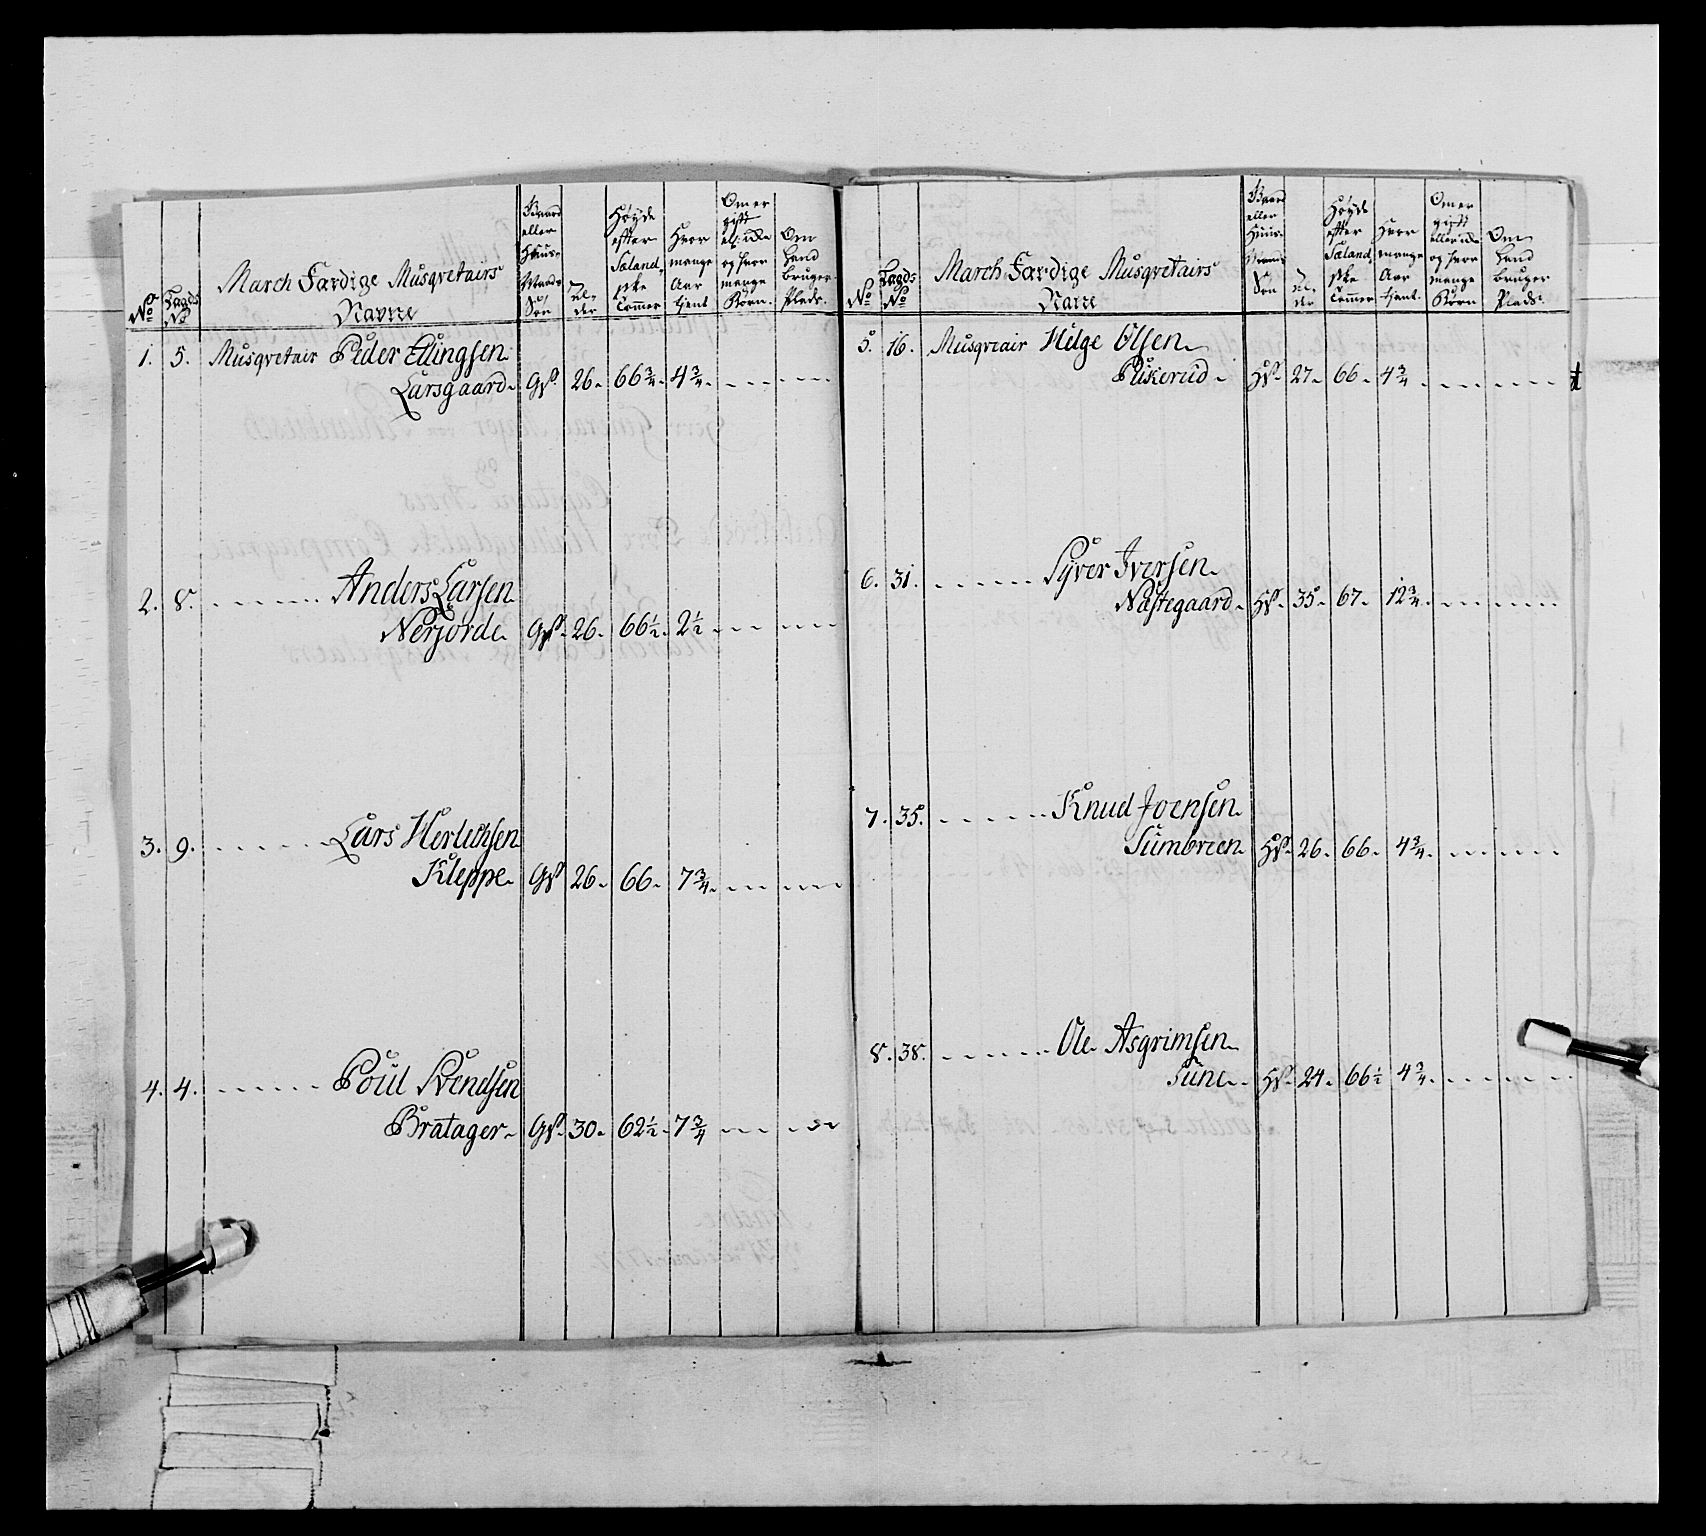 No
Lægds No
March Færdige Musqvetairs
Navne
Gaard
eller
Huus-
Mands
Søn
Al-
der
Høyde
efter
Sæland,
ske
Tommer
Hvor
mange
Aar
tjent
Om er
gift
el: ikke
og hvor
mange
Børn.
Om
Hand
bruger
Plads.
1. 5. Musqvetair Peder Ellingsen
Larsgaard. GS. 26. 66 3/4. 4 3/4.
2. 8. Anders Larsen
Nerjorde. GS. 26. 66 1/2. 2 1/2
3. 9. Lars Herlechsen
Kleppe. GS 26. 66. 7 3/4.
4. 4. Poul Svendsen
Bratager. GS. 30. 62 1/2. 7 3/4
No
Lægds No
March Færdige Musqvetairs
Navne
Gaard
eller
Huus-
Mands
Søn
Al-
der
Høyde
efter
Sæland,
ske
Tommer
Hvor
mange
Aar
tjent.
Om er
gift
eller ikke
og hvor
mange
Børn
Om
Hand
bruger
Plads.
5. 16. Musqveair Helge Olsen
Ruskerud. HS. 27. 66. 4 3/4
6. 31. Syver Iversen
Nastegaard. HS. 35. 67. 12 3/4.
7. 35. Knud Joensen
Sumbreen. HS. 26. 66. 4 3/4.
8. 38. Ole Asgrimsen
HS. 24. 66 1/2 4 3/4.